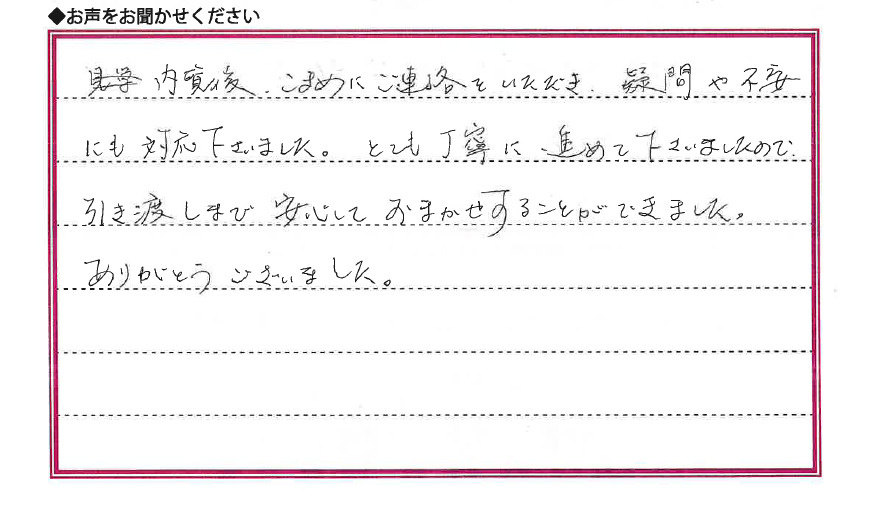 ◆お声をお聞かせください
内覧後、こまめにご連絡をいただき、疑問や不安
にも対応下さいました。とても丁寧に進めて下さいましたので、
引き渡しまで安心しておまかせすることができました。
ありがとうございました。